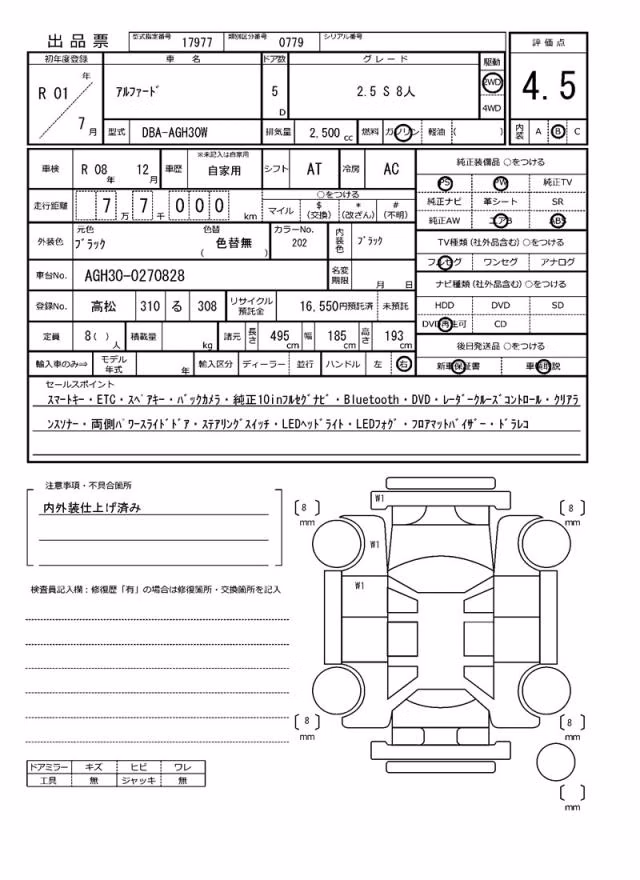 出品票 型式指定番号 17977 類別区分番号 0779 シリアル番号
評価点
4.5
内装 A B C
初年度登録 車名 ドア数 グレード 駆動
R 01 年 7 月 アルファード 5 D 2.5 S 8人 2WD 4WD
型式 DBA-AGH30W 排気量 2,500 cc 燃料 ガソリン 軽油 ( )
車検 R 08 年 12 月 車歴 ※未記入は自家用 自家用 シフト AT 冷房 AC
走行距離 7 万 7 千 0 0 0 km
○をつける
マイル $ (交換) * (改ざん) # (不明)
外装色 元色 ブラック 色替 色替無 ( ) カラーNo. 202 内装色 ブラック
車台No. AGH30-0270828 名変期限 月 日
登録No. 高松 310 る 308 リサイクル預託金 16,550円預託済 未預託
定員 8( ) 人 積載量 kg 諸元 長さ 495 cm 幅 185 cm 高さ 193 cm
輸入車のみ⇒ モデル年式 年 輸入区分 ディーラー・並行 ハンドル 左 右
純正装備品 ○をつける
PS PW 純正TV
純正ナビ 革シート SR
純正AW エアB ABS
TV種類 (社外品含む) ○をつける
フルセグ ワンセグ アナログ
ナビ種類 (社外品含む) ○をつける
HDD DVD SD
DVD再生可 CD
後日発送品 ○をつける
新車保証書 車輌取説
セールスポイント
スマートキー・ETC・スペアキー・バックカメラ・純正10inフルセグナビ・Bluetooth・DVD・レーダークルーズコントロール・クリアラ
ンスソナー・両側パワースライドドア・ステアリングスイッチ・LEDヘッドライト・LEDフォグ・フロアマットバイザー・ドラレコ
注意事項・不具合箇所
内外装仕上げ済み
検査員記入欄：修復歴「有」の場合は修復箇所・交換箇所を記入
ドアミラー キズ ヒビ ワレ
工具 無 ジャッキ 無
W1
8 mm
8 mm
W1
W1
8 mm
8 mm
mm